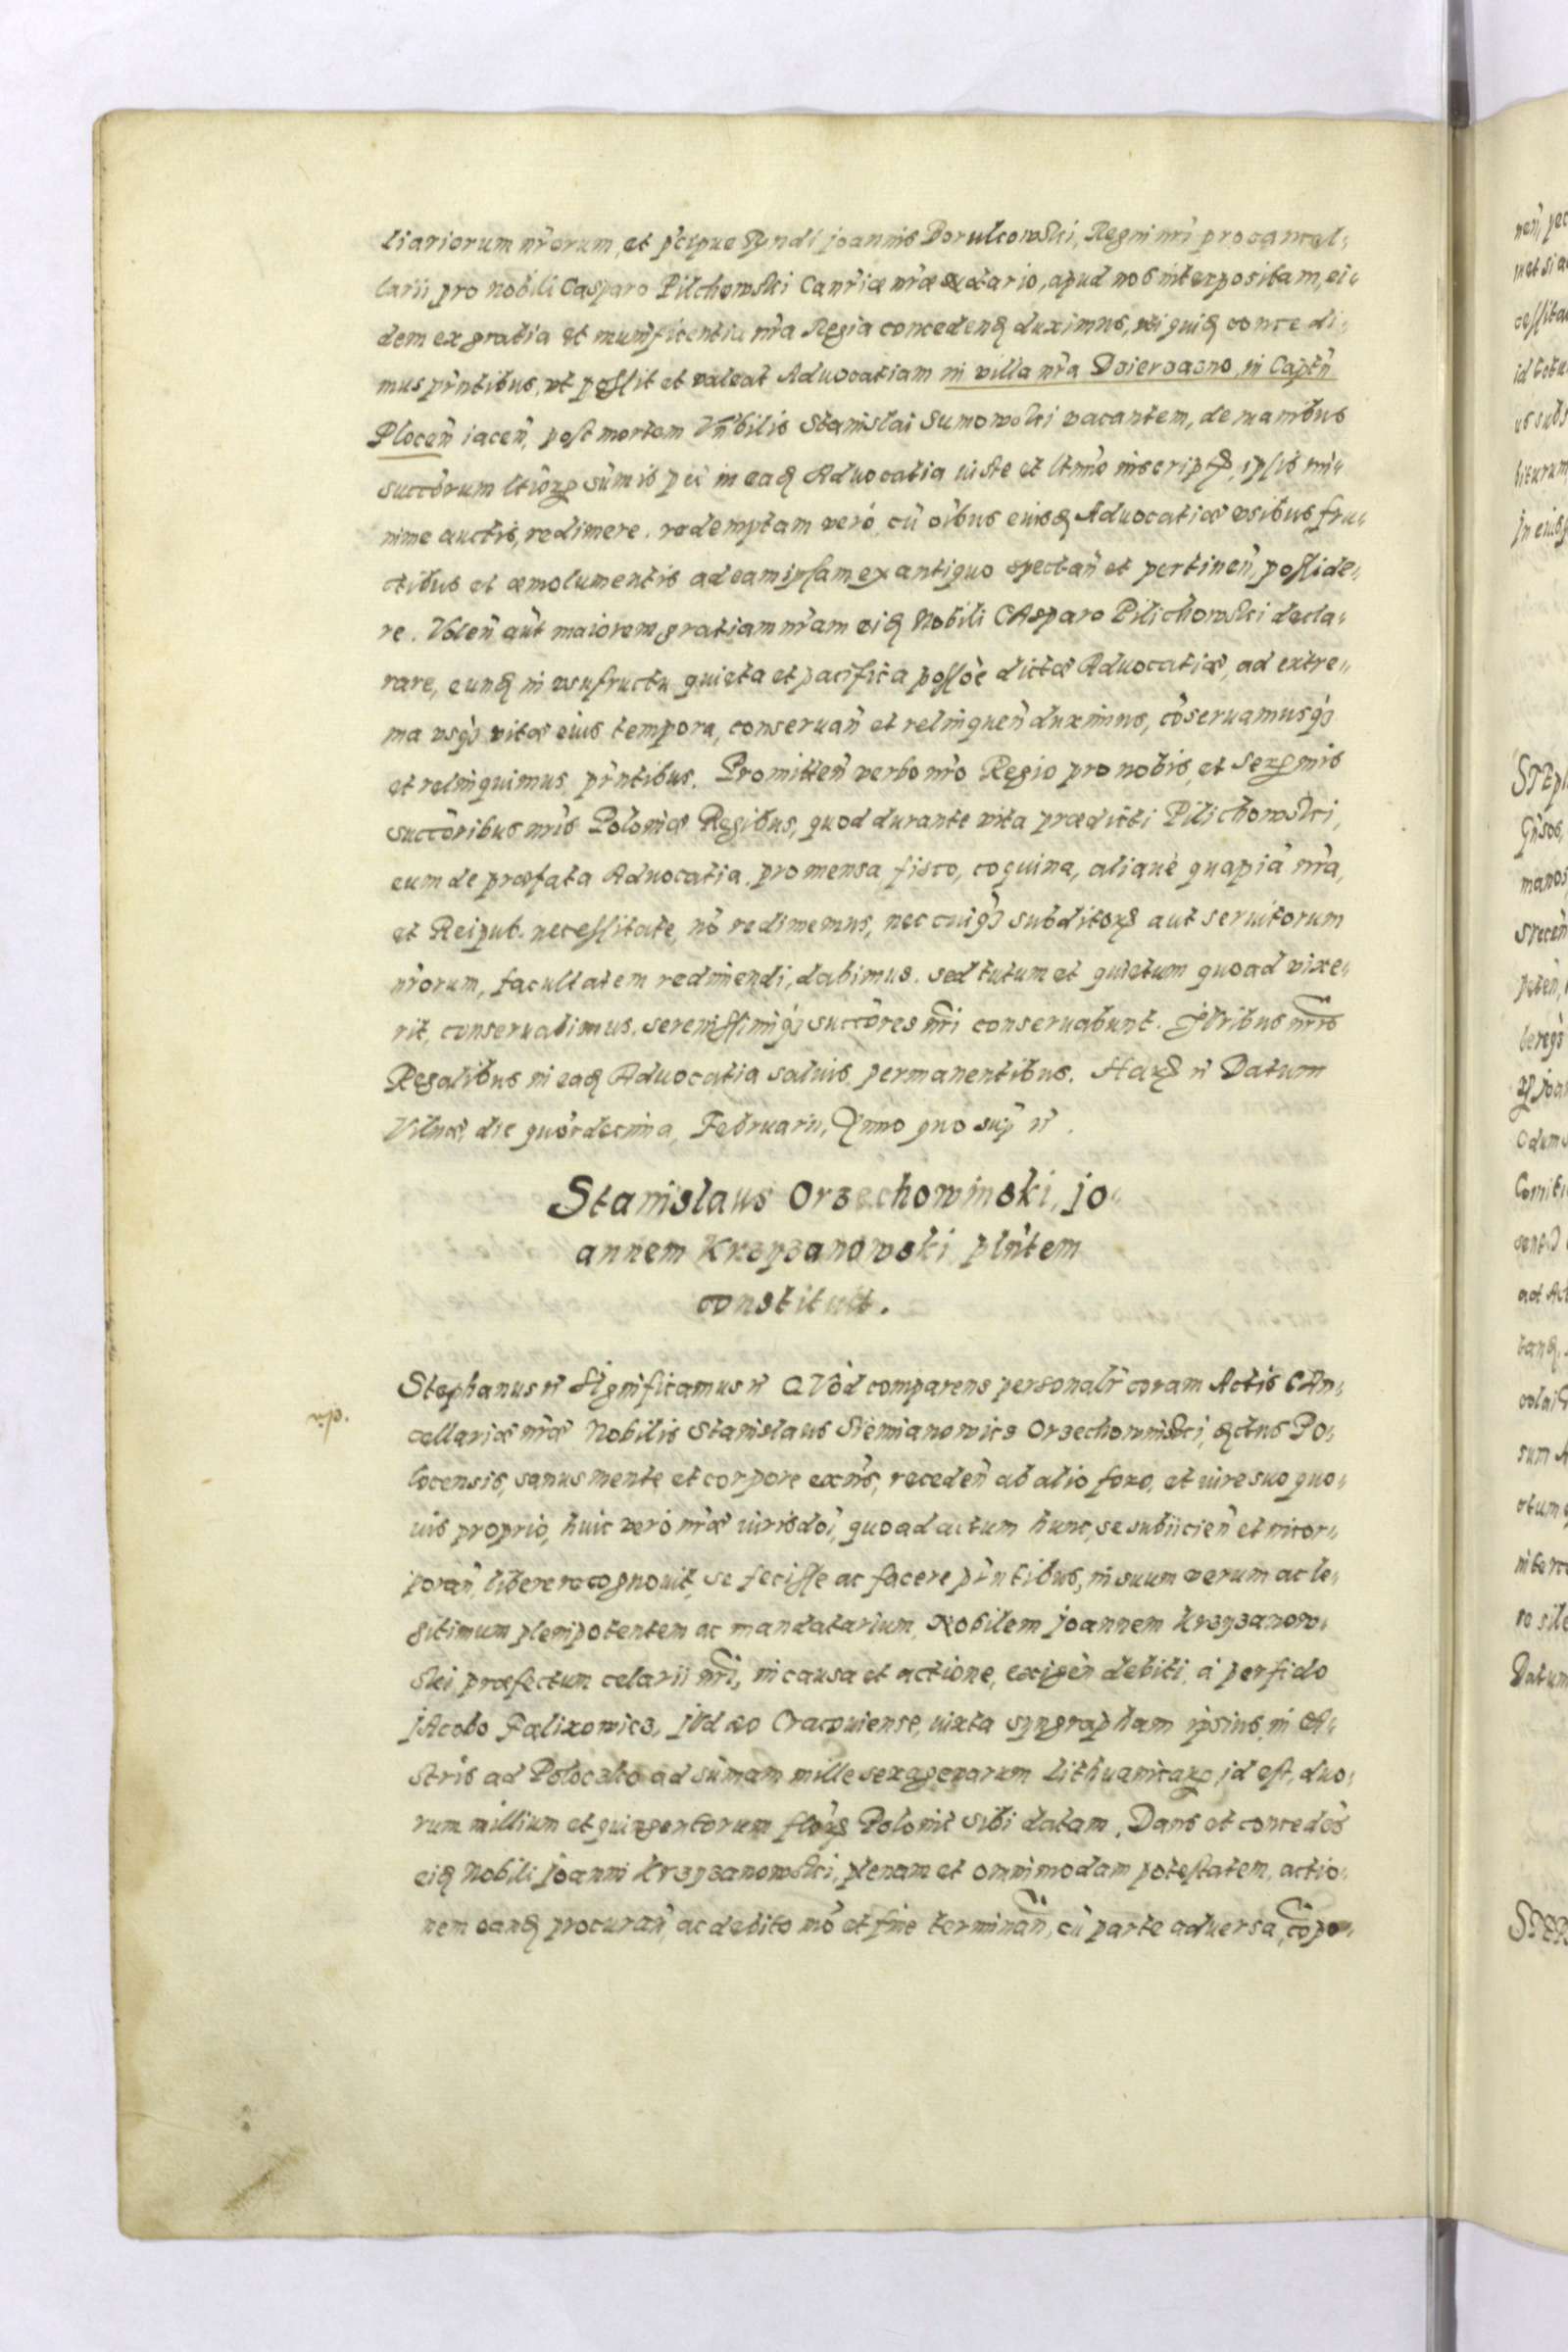 liariorum nr̃orum, et p̃cipue Rñdi Joannis Borukowski, Regni nr̃i procancel=
larii pro nobili Casparo Pilchowski Canr̃iæ nr̃æ Notario, apud nos interpositam, ei=
dem ex gratia et munificentia nr̃a Regia concedenđ duximus, uti quiđ concedi=
mus pr̃ntibus, ut possit et valeat Advocatiam in villa nr̃a Dzierzazno, in Captñ
Plocen̄ iacen̄, post mortem Stanislai Sumowski vacantem, de manibus
succ̃orum sum̃is in eađ Advocatia iuste et inscript, ipsis mi=
nime auctis, redimere. redemptam verò, cũ oĩbus eiusđ Advocatiæ usibus fru=
ctibus et æmolumentis ad eam ipsam ex antiquo spectan̄ et pertinen̄, posside=
re. Volen̄ aũt maiorem gratiam nr̃am eiđ Nobili CAsparo Pilichowski decla=
rare, eunđ in usufructu quieta et pacifica posse͠ dictæ Advocatiæ, ad extre=
ma usq; vitæ eius tempora, conservan̄ et relinquen̄ duximus, cõservamusq;
et relinquimus pr̃ntibus. Promitten̄ verbo nr̃o Regio pro nobis, et Ser͠mis
succ̃oribus nr̃is Poloniæ Regibus, quod durante vita prædicti Pilichowski,
eum de præfata Advocatia, pro mensa, fisco, coquina, aliavè quapiã nr̃a,
et Reipub. necessitate, nõ redimemus, nec cuiq; subditorꝝ aut servitorum
nr̃orum, facultatem redimendi, dabimus. sed tutum et quietum quoad vixe=
rit, conservabimus. serenissimiq; succ̃ores nr̃i conservabunt. Juribus nr̃is
Regalibus in eađ Advocatia salvis permanentibus. Harꝝ &c Datum
Vilnæ, die quãrdecima, Februarii, Anno quo sup̃ &c.
Stanislaus Orzechowinski, Jo=
annem Krzyzanowski plñtem
constituit.
Stephanus &c Significamus &c QVòd comparens personalr̃ coram Actis CAn=
cellariæ nr̃æ Nobilis Stanislaus Siemianowicz Orzechowinski, Po=
locensis, sanus mente et corpore exñs, receden̄ ab alio foro, et iure suo quo=
uis proprio, huic verò nr̃æ iurisdõi, quo ad actum hunc, se subiicien̄ et incor=
poran̄, liberè recognovit, se fecisse ac facere pr̃ntibus, in suum verum ac le=
gitimum plenipotentem ac mandatarium, Nobilem Joannem Krzyzanow=
ski præfectum celarii nr̃i, in causa et actione, exigen̄ debiti, à perfido
JAcobo Fælixowicz, JVdæo Cracoviense, iuxta syngrapham ipsius, in CA=
stris ad Poloczko ad sum̃am mille sexagenarum Lithuanicarꝝ, id est, duo=
rum millium et quingentorum flõrꝝ Polonic̃ sibi datam. Dans et concedẽs
eiđ Nobili Joanni Krzyzanowski, plenam et omnimodam potestatem, actio=
nem eanđ procuran̄, ac debito mõ et fine terminan̄, cũ parte adversa, cõpo=